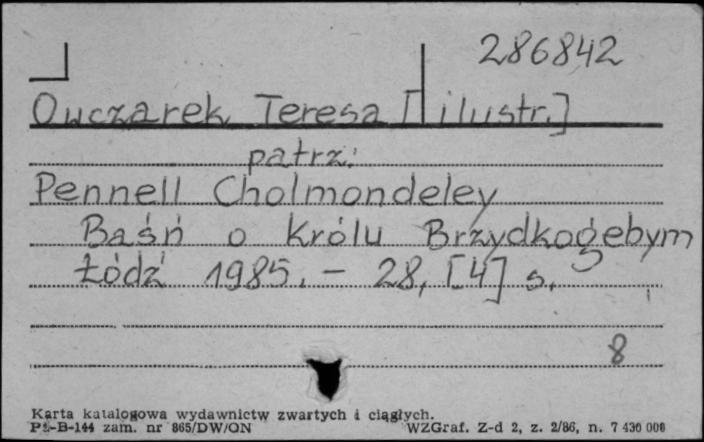 286842
Owczarek Teresa [ilustr.]
patrz:
Pennell Cholmondeley
Baśń o Królu Brzydkogębym
Łódź 1985. - 28, [4] s.
8
Karta katalogowa wydawnictw zwartych i ciągłych.
Pu-B-144 zam. nr 865/DW/ON WZGraf. Z-d 2, z. 2/86, n. 7 430 000